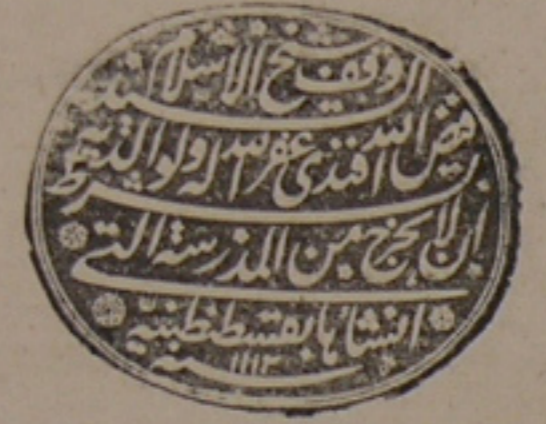 وقف شيخ الاسلام السيد
فيض الله افندى غفر الله له ولوالديه
بشرط ان لا يخرج من المدرسة التى
انشأها بقسطنطينيّة
سنه ١١١٣